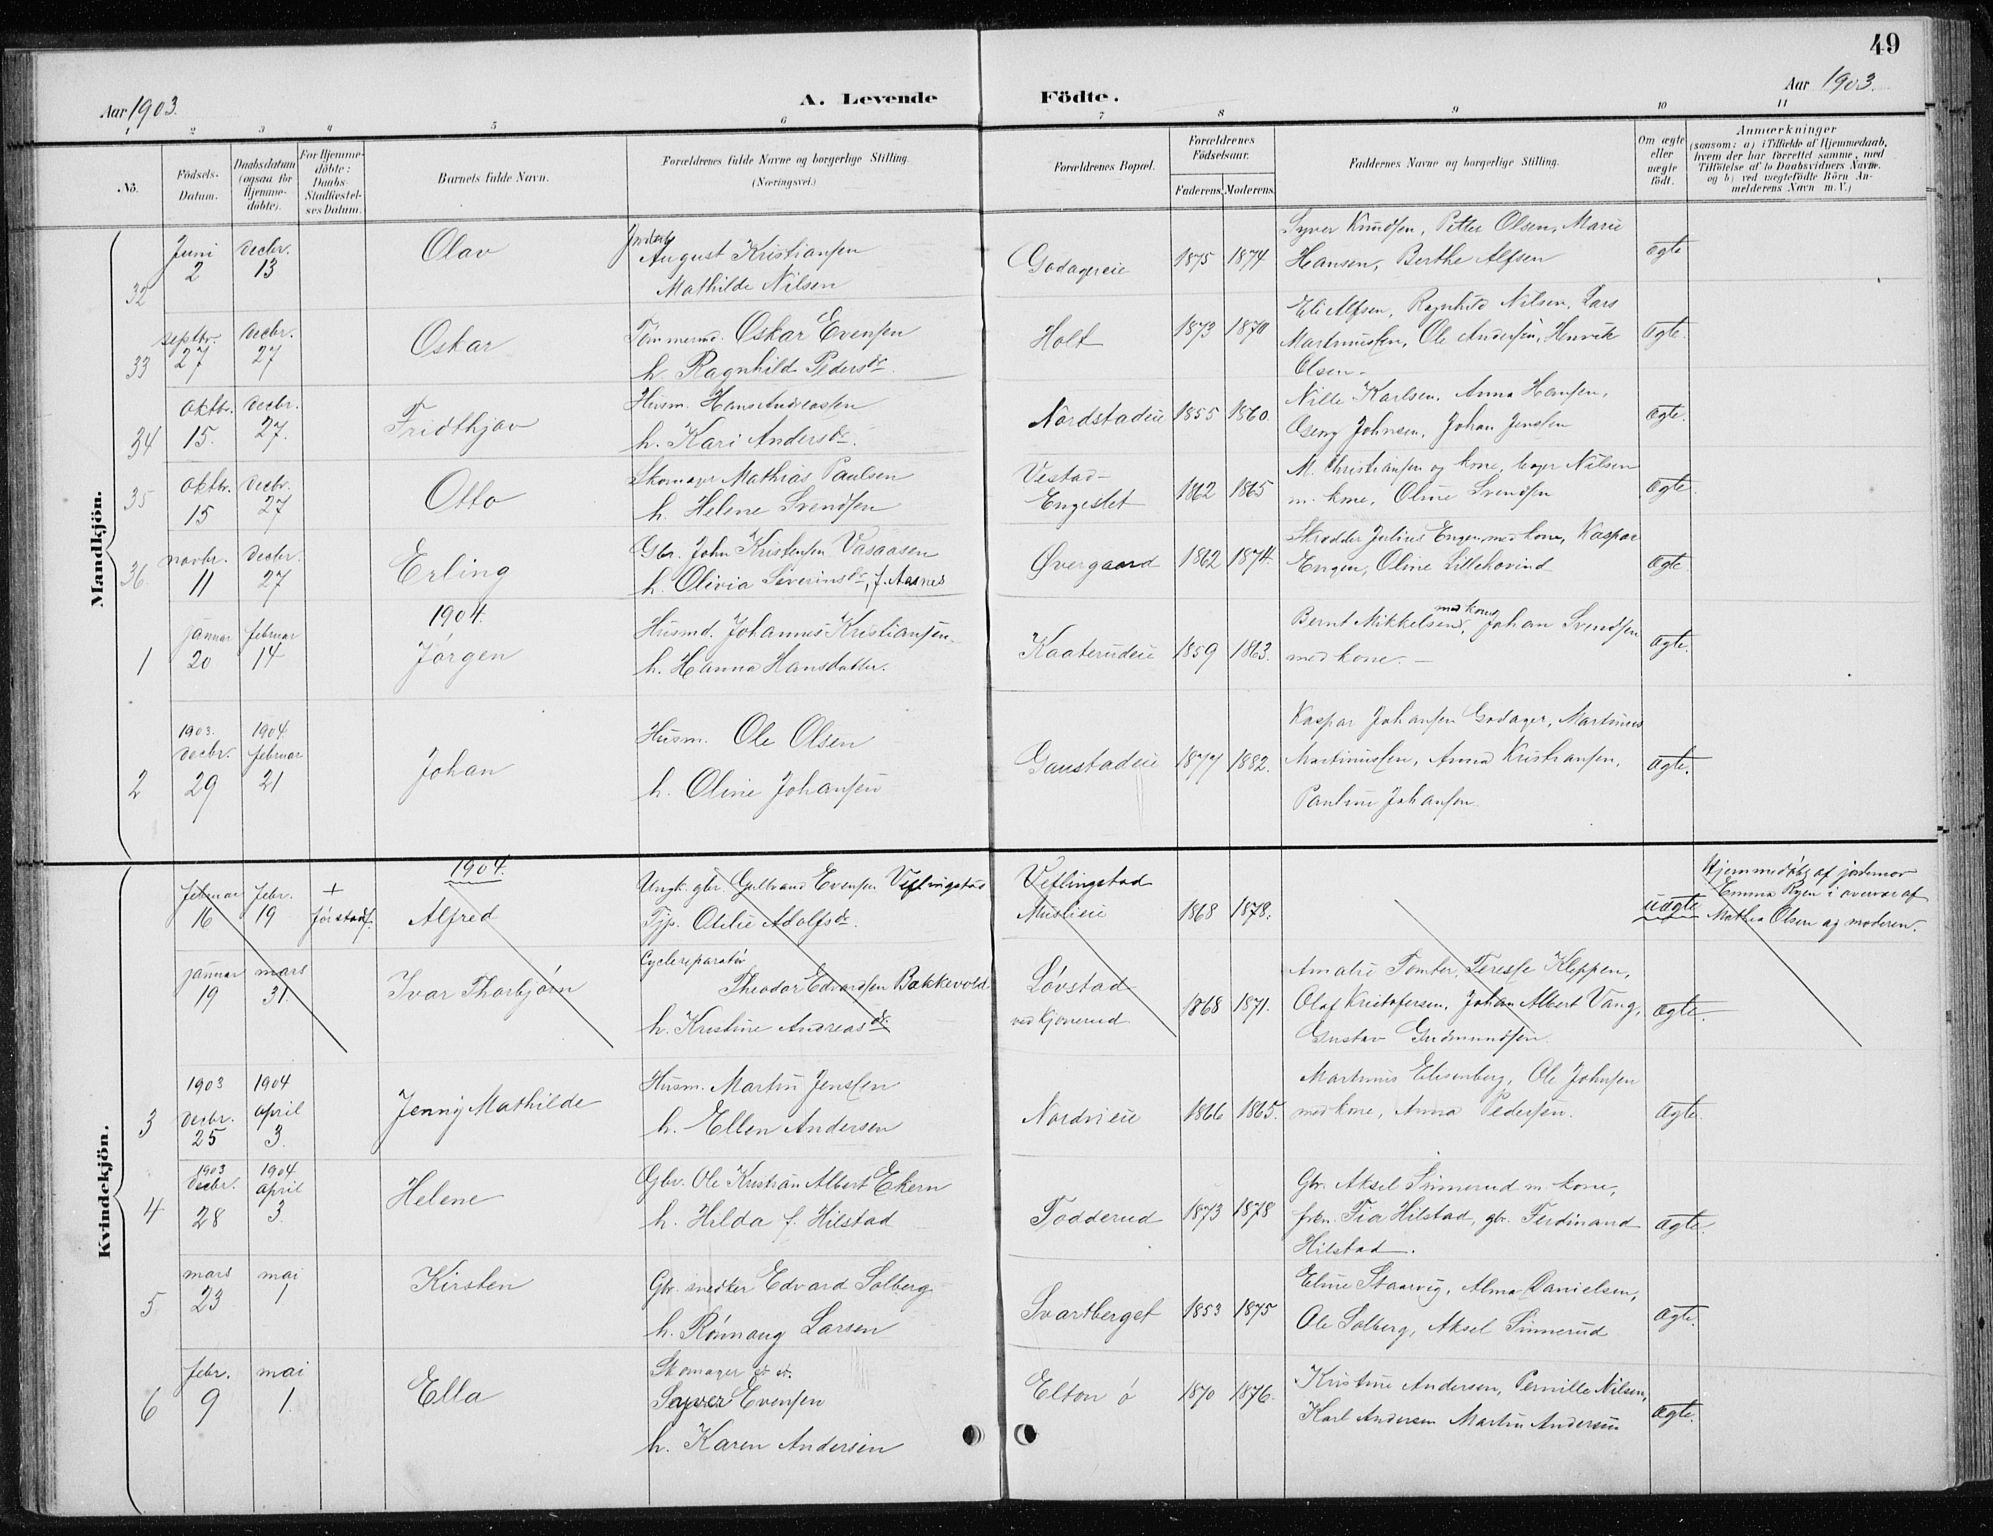 49
Aar 1903.
A. Levende Födte.
Aar 1903.
1 2 3 4 5 6 7 8 9 10 11
No.
Födsels-Datum.
Daabsdatum (ogsaa for Hjemme-döbte).
For Hjemme-döbte: Daabs-Stadfæstel-ses Datum.
Barnets fulde Navn.
Forældrenes fulde Navne og borgerlige Stilling.
(Næringsvei.)
Forældrenes Bopæl.
Forældrenes Födselsaar.
Faderens. Moderens.
Faddernes Navne og borgerlige Stilling.
Om ægte eller uægte födt.
Anmærkninger
(saasom: a) i Tilfælde af Hjemmedaab,
hvem der har forrettet samme, med
Tilföielse af to Daabsvidners Navne.
og b) ved uægtefödte Börn An-
melderens Navn m. V.)
Mandkjön.
32 Juni 2 decbr. 13 Olav August Kristiansen Mathilde Nilsen Godagereie 1875 1874 Syver Knudsen, Petter Olsen, Marie
Hansen, Berthe Alfsen ægte
33 septbr. 27 decbr. 27 Oskar Tömmermd. Oskar Evensen h. Ragnhild Pedersdr. Holt 1873 1870 Eli Alfsen, Ragnhild Nilsen, Lars
Martinussen, Ole Andersen, Henrik
Olsen. ægte.
34 oktbr. 15. decbr. 27. Fridthjov Husm. Hans Andreassen h. Kari Andersdr. Nordstadeie 1855 1860. Nille Karlsen, Anna Hansen,
Georg Johnsen, Johan Jenssen ægte.
35 oktbr. 15 decbr. 27 Otto Skomager Mathias Paulsen h. Helene Svendsen Vestad-Engeslet 1862 1865 M. Christiansen og kone, Nilsen
m. kone, Oline Svendsen ægte.
36. novbr. 11 decbr. 27 Erling Gbr. John Kristensen Vasaasen h. Olivia Severinsdr., f. Aasnes Øvergaard 1862 1874. Skrædder Julius Engen med kone, Kaspar
Engen, Oline Lillehovind ægte
1904.
1 januar 20 februar 14 Jörgen Husmd. Johannes Kristiansen h. Hanna Hansdatter. Kaaterudeie 1859 1863. Bernt Mikkelsen med kone, Johan Svendsen
med kone. — ægte.
2 1903. decbr. 29 1904. februar 21 Johan Husm. Ole Olsen h. Oline Johansen Gaustadeie 1877 1882. Kaspar Johansen Godager, Martinus
Martinussen, Anna Kristiansen,
Pauline Johansen. ægte.
Kvindekjön.
1904.
februar 16 febr. 19 + Alfred Ungk. gbr. Gulbrand Evensen Veflingstad Tjp. Otilie Adolfsdr. Veflingstad Muslieie 1868 1878. uægte Hjemmedøbt af jordemor
Emma Ryen i overvær af
Mathea Olsen og moderen.
januar 19 mars 31 Ivar Thorbjörn Cyclereparatör Theodor Edvardsen Bakkevold h. Kristine Andreasdr. Løvstad ved Kjonerud 1868 1871. Amalie Tomter, Terese Kleppen,
Olaf Kristofersen, Johan Albert Vang,
Gustav Gudmundsen. ægte.
3 1903 decbr. 25 1904 april 3. Jenny Mathilde Husm. Martin Jenssen h. Ellen Andersen Nordvieie 1866 1865. Martinus Elisenberg, Ole Johnsen
med kone, Anna Pedersen. ægte.
4 1903 decbr. 28 1904. april 3. Helene Gbr. Ole Kristian Albert Ekern h. Hilda f. Hilstad Fodderud 1873 1878 Gbr. Aksel Sinnerud m. kone,
frkn. Tia Hilstad, gbr. Ferdinand
Hilstad. ægte.
5 mars 23 mai 1 Kirsten Gbr. snedker Edvard Solberg h. Rönnaug Larsen Svartberget 1853 1875 Eline Staarvig, Alma Danielsen,
Ole Solberg, Aksel Sinnerud ægte.
6 febr. 9 mai 1. Ella Skomager Syver Evensen h. Karen Andersen Elton ö 1870 1876. Kristine Andersen, Pernille Nilsen,
Karl Andersen Martin Andersen ægte.